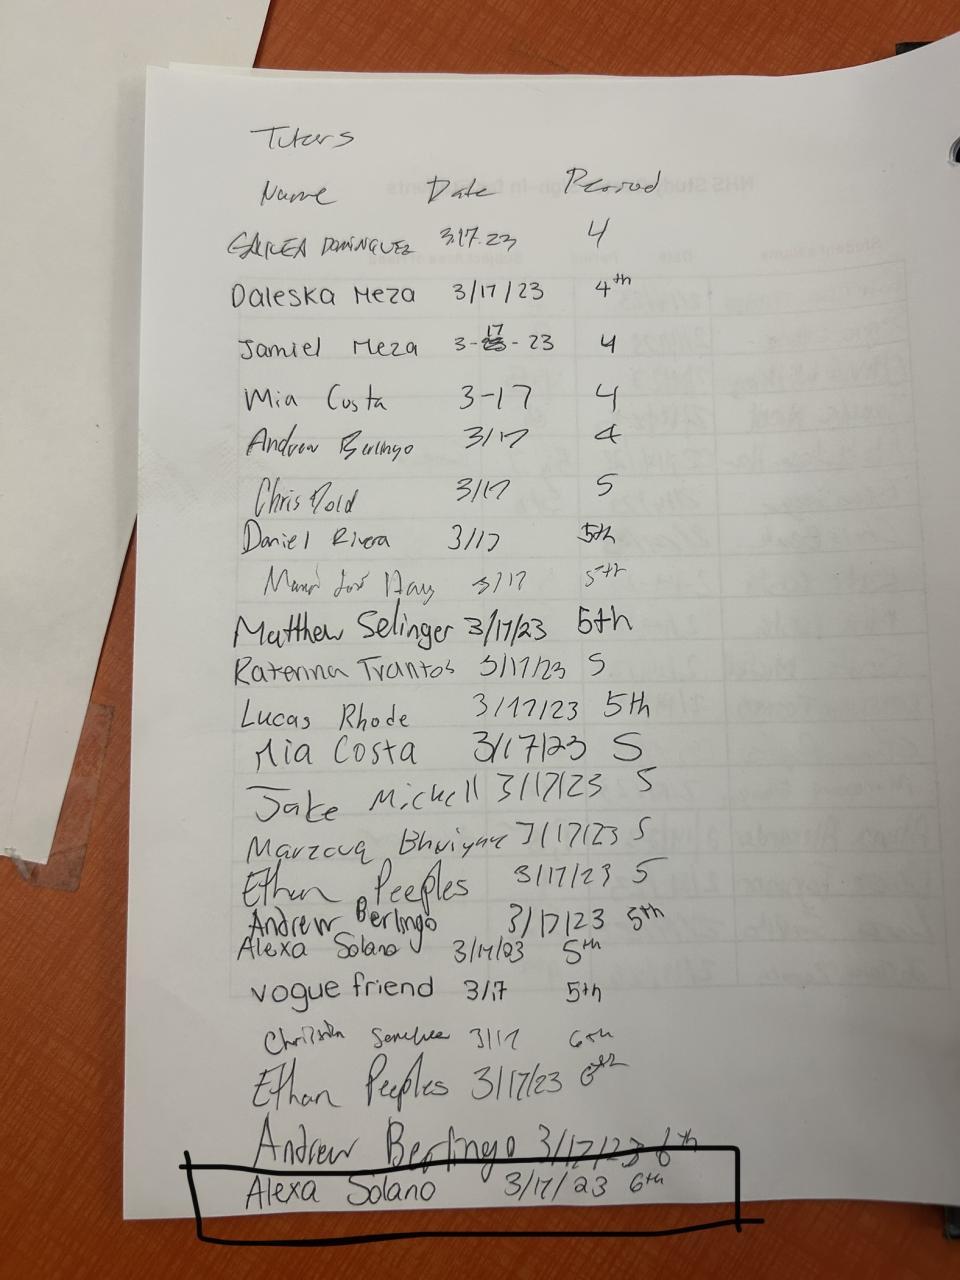 Tutors
Name Date Period
DOMINGUEZ 3.17.23 4
Daleska Meza 3/17/23 4th
Jamiel Meza 3-17-23 4
Mia Costa 3-17 4
Andrew Berlingo 3/17 4
Chris Dold 3/17 5
Daniel Rivera 3/17 5th
3/17 5th
Matthew Selinger 3/17/23 5th
Katerina Trantos 3/17/23 5
Lucas Rhode 3/17/23 5th
Mia Costa 3/17/23 5
Jake Mickell 3/17/23 5
Marzouq 3/17/23 5
Ethan Peeples 3/17/23 5
Andrew Berlingo 3/17/23 5th
Alexa Solano 3/17/23 5th
vogue friend 3/17 5th
3/17 6th
Ethan Peeples 3/17/23 6th
Andrew Berlingo 3/17/23 6th
Alexa Solano 3/17/23 6th